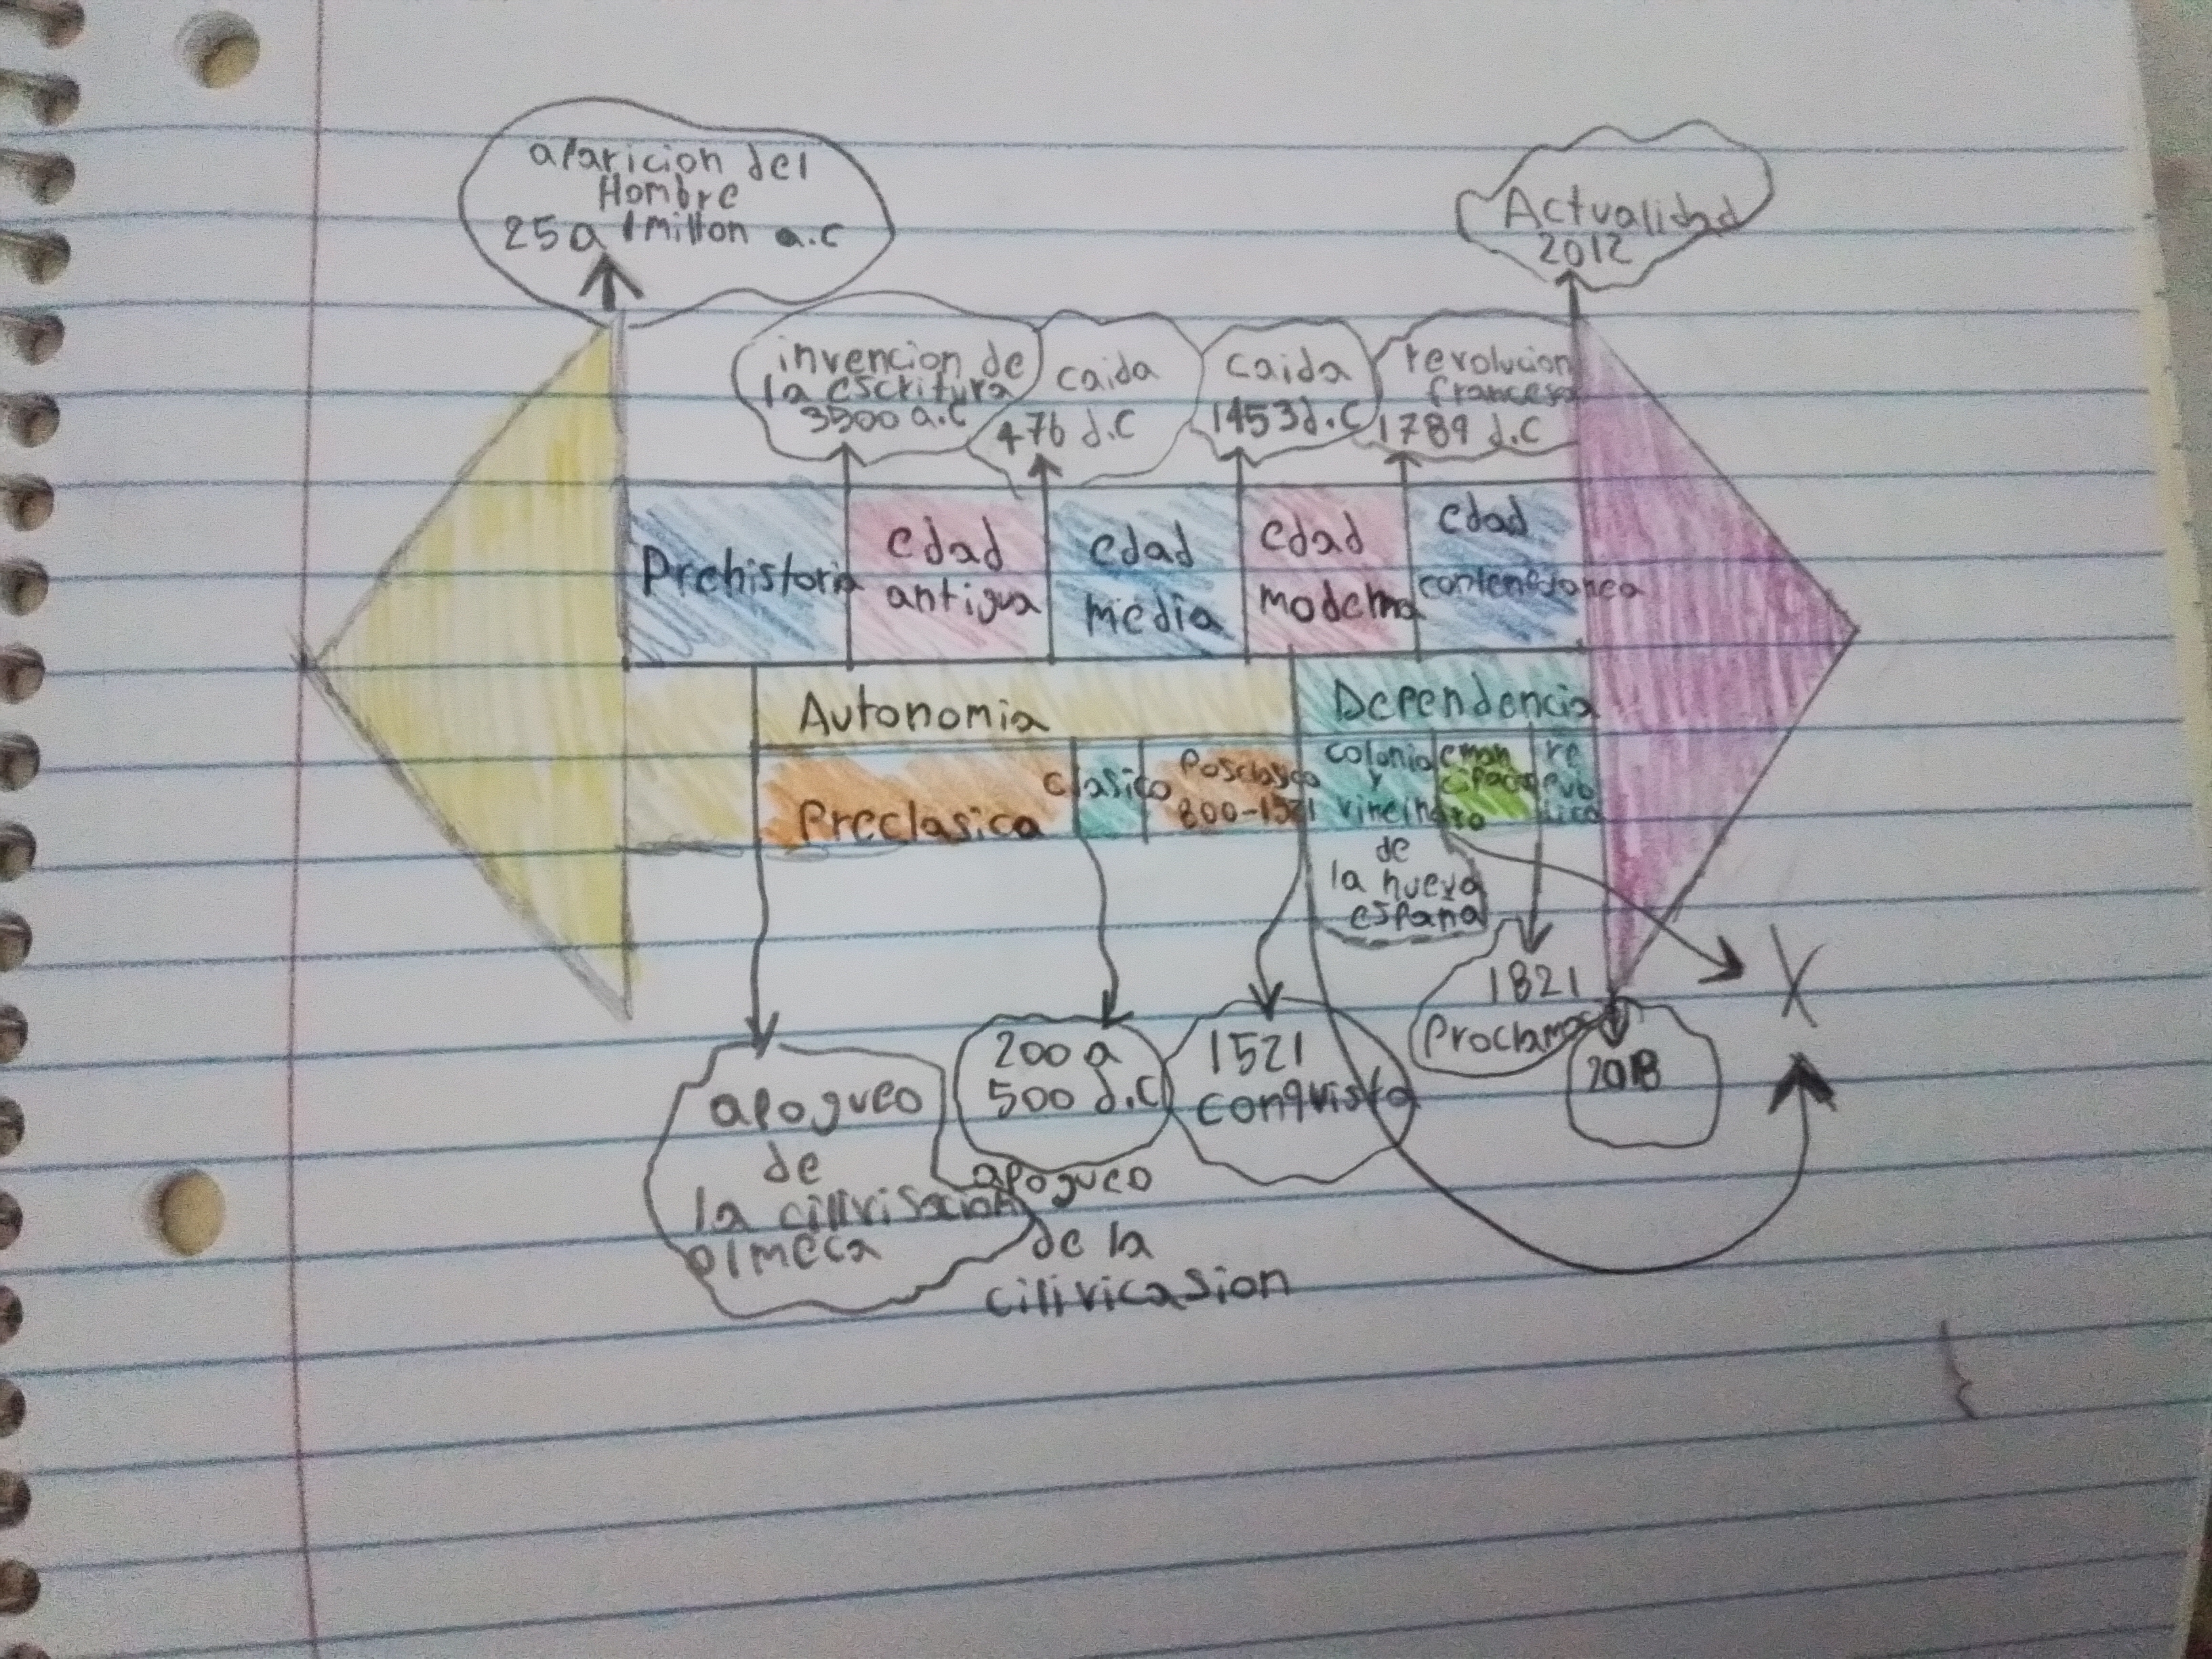 aparicion del
Hombre
25 a 1 millon a.c
Actualidad
2012
invencion de
la escritura
3500 a.c
caida
476 d.C
caida
1453 d.C
revolucion
francesa
1789 d.C
Prehistoria
edad
antigua
edad
media
edad
moderna
edad
Autonomia
Dependencia
Preclasica
clasico
Posclasico
800-1521
colonia
y
eman
cipacion
re
pub
lica
de
la nueva
españa
1821
2018
X
apogueo
de
la cilivisacion
olmeca
200 a
500 d.C
apogueo
de la
cilivicasion
1521
conquista